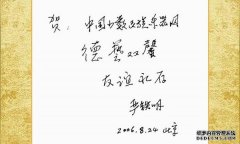 贺：中国少数民族乐器网
德艺双馨
友谊永存
2006.8.24 北京